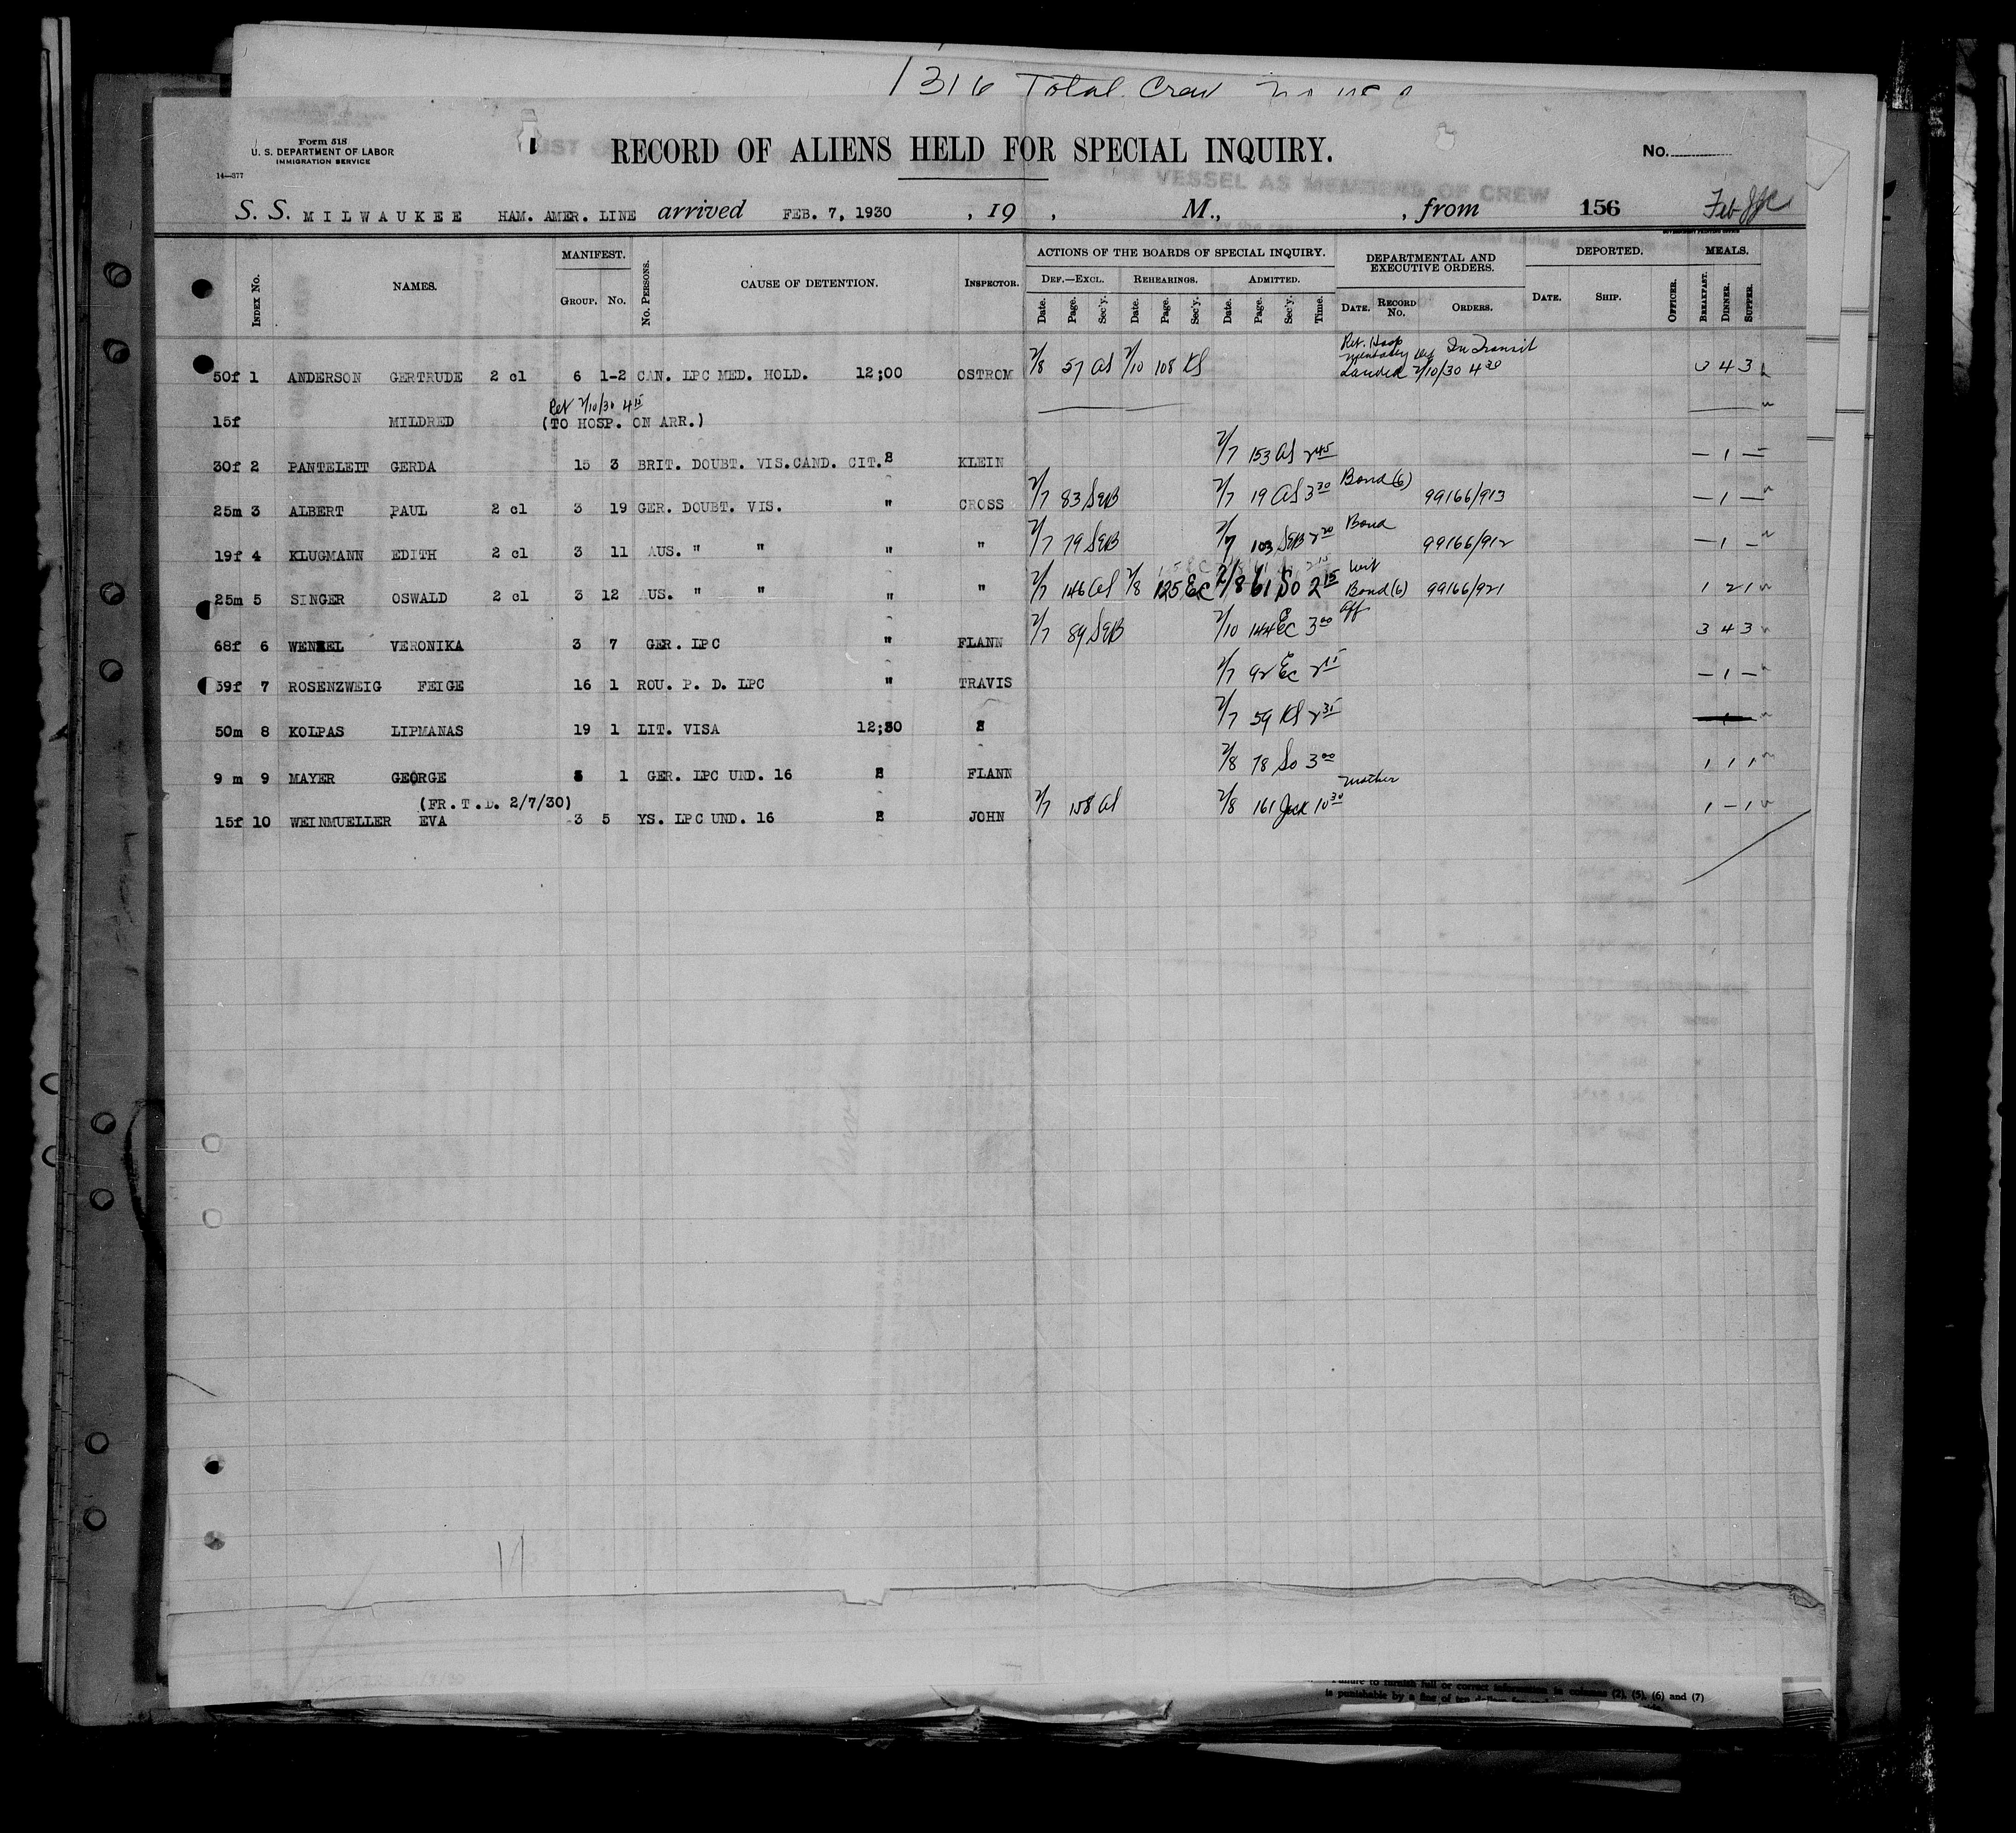 1316 Total Crew
Form 518
U. S. DEPARTMENT OF LABOR
IMMIGRATION SERVICE
14—377
RECORD OF ALIENS HELD FOR SPECIAL INQUIRY.
No.
VESSEL AS MEMBERS OF CREW
S. S. MILWAUKEE HAM. AMER. LINE arrived FEB. 7, 1930 , 19 , M., , from 156 Feb
INDEX NO. NAMES. MANIFEST. GROUP. NO. NO. PERSONS. CAUSE OF DETENTION. INSPECTOR. ACTIONS OF THE BOARDS OF SPECIAL INQUIRY. DEPARTMENTAL AND EXECUTIVE ORDERS. DEPORTED. MEALS.
DEF.—EXCL. REHEARINGS. ADMITTED.
Date. Page. Sec'y. Date. Page. Sec'y. Date. Page. Sec'y. Time. DATE. RECORD NO. ORDERS. DATE. SHIP. OFFICER. BREAKFAST. DINNER. SUPPER.
50f 1 ANDERSON GERTRUDE 2 cl 6 1-2 CAN. LPC MED. HOLD. 12;00 OSTROM 2/8 57 AS 2/10 108 KS In Transit Landed 2/10/30 4 30 4 3
Ret 2/10/30 4 15
15f MILDRED (TO HOSP. ON ARR.)
30f 2 PANTELEIT GERDA 15 3 BRIT. DOUBT. VIS. CAND. CIT. KLEIN 2/7 153 AS 2 45 — 1 —
25m 3 ALBERT PAUL 2 cl 3 19 GER. DOUBT. VIS. " CROSS 2/7 83 SEB 2/7 19 AS 3 30 Bond (6) 99166/913 — 1 —
19f 4 KLUGMANN EDITH 2 cl 3 11 AUS. " " " " 2/7 79 SEB 2/7 103 SEB 2 20 Bond 99166/912 — 1 —
25m 5 SINGER OSWALD 2 cl 3 12 AUS. " " " " 2/7 146 AS 2/8 125 EC 2/8 61 So 2 15 Bond (6) 99166/921 1 2 1
68f 6 WENZEL VERONIKA 3 7 GER. LPC " FLANN 2/7 89 SEB 2/10 144 EC 3 00 aff 3 4 3
59f 7 ROSENZWEIG FEIGE 16 1 ROU. P. D. LPC " TRAVIS 2/7 92 EC 2 15 — 1 —
50m 8 KOLPAS LIPMANAS 19 1 LIT. VISA 12;30 2/7 59 KS 2 35
9 m 9 MAYER GEORGE 1 GER. LPC UND. 16 FLANN 2/8 78 So 3 00 1 1 1
(FR. T. D. 2/7/30)
15f 10 WEINMUELLER EVA 3 5 YS. LPC UND. 16 JOHN 2/7 158 AS 2/8 161 10 30 mother 1 — 1
Failure to furnish full or correct information in columns (2), (5), (6) and (7)
is punishable by a fine of ten dollars